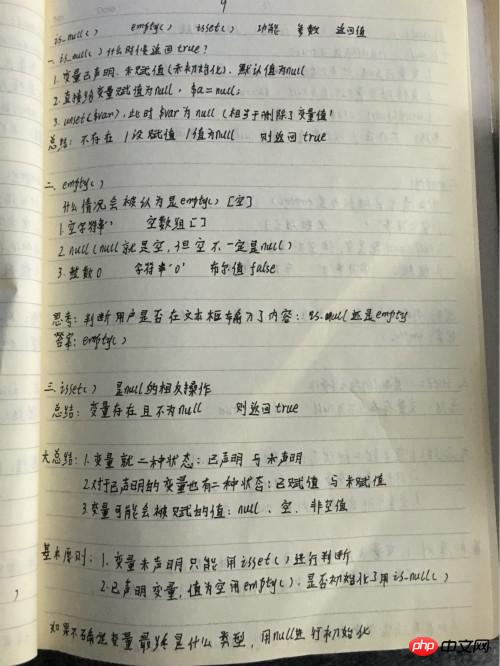 9
is_null() empty() isset() 功能 参数 返回值
一. is_null() 什么时候返回true?
1. 变量已声明, 未赋值(未初始化), 默认值为null
2. 直接给变量赋值为null, $a=null;
3. unset($var), 此时 $var 为 null (相当于删除了变量值)
总结: 不存在 / 没赋值 / 值为null 则返回 true
二. empty()
什么情况会被认为是empty() [空]
1. 空字符串'' 空数组[]
2. null(null就是空, 但空不一定是null)
3. 整数0 字符串'0' 布尔值 false
思考: 判断用户是否在文本框输入了内容: is_null 还是empty
答案: empty()
三. isset() 是null的相反操作
总结: 变量存在且不为null 则返回true
大总结: 1. 变量就二种状态: 已声明 与 未声明
2. 对于已声明的变量也有二种状态: 已赋值 与 未赋值
3. 变量可能会被赋的值: null 、 空 、 非空值
基本原则: 1. 变量未声明只能用isset()进行判断
2. 已声明变量, 值为空用empty(), 是否初始化了用is_null()
如果不确定变量最终是什么类型, 用null进行初始化
php中文网